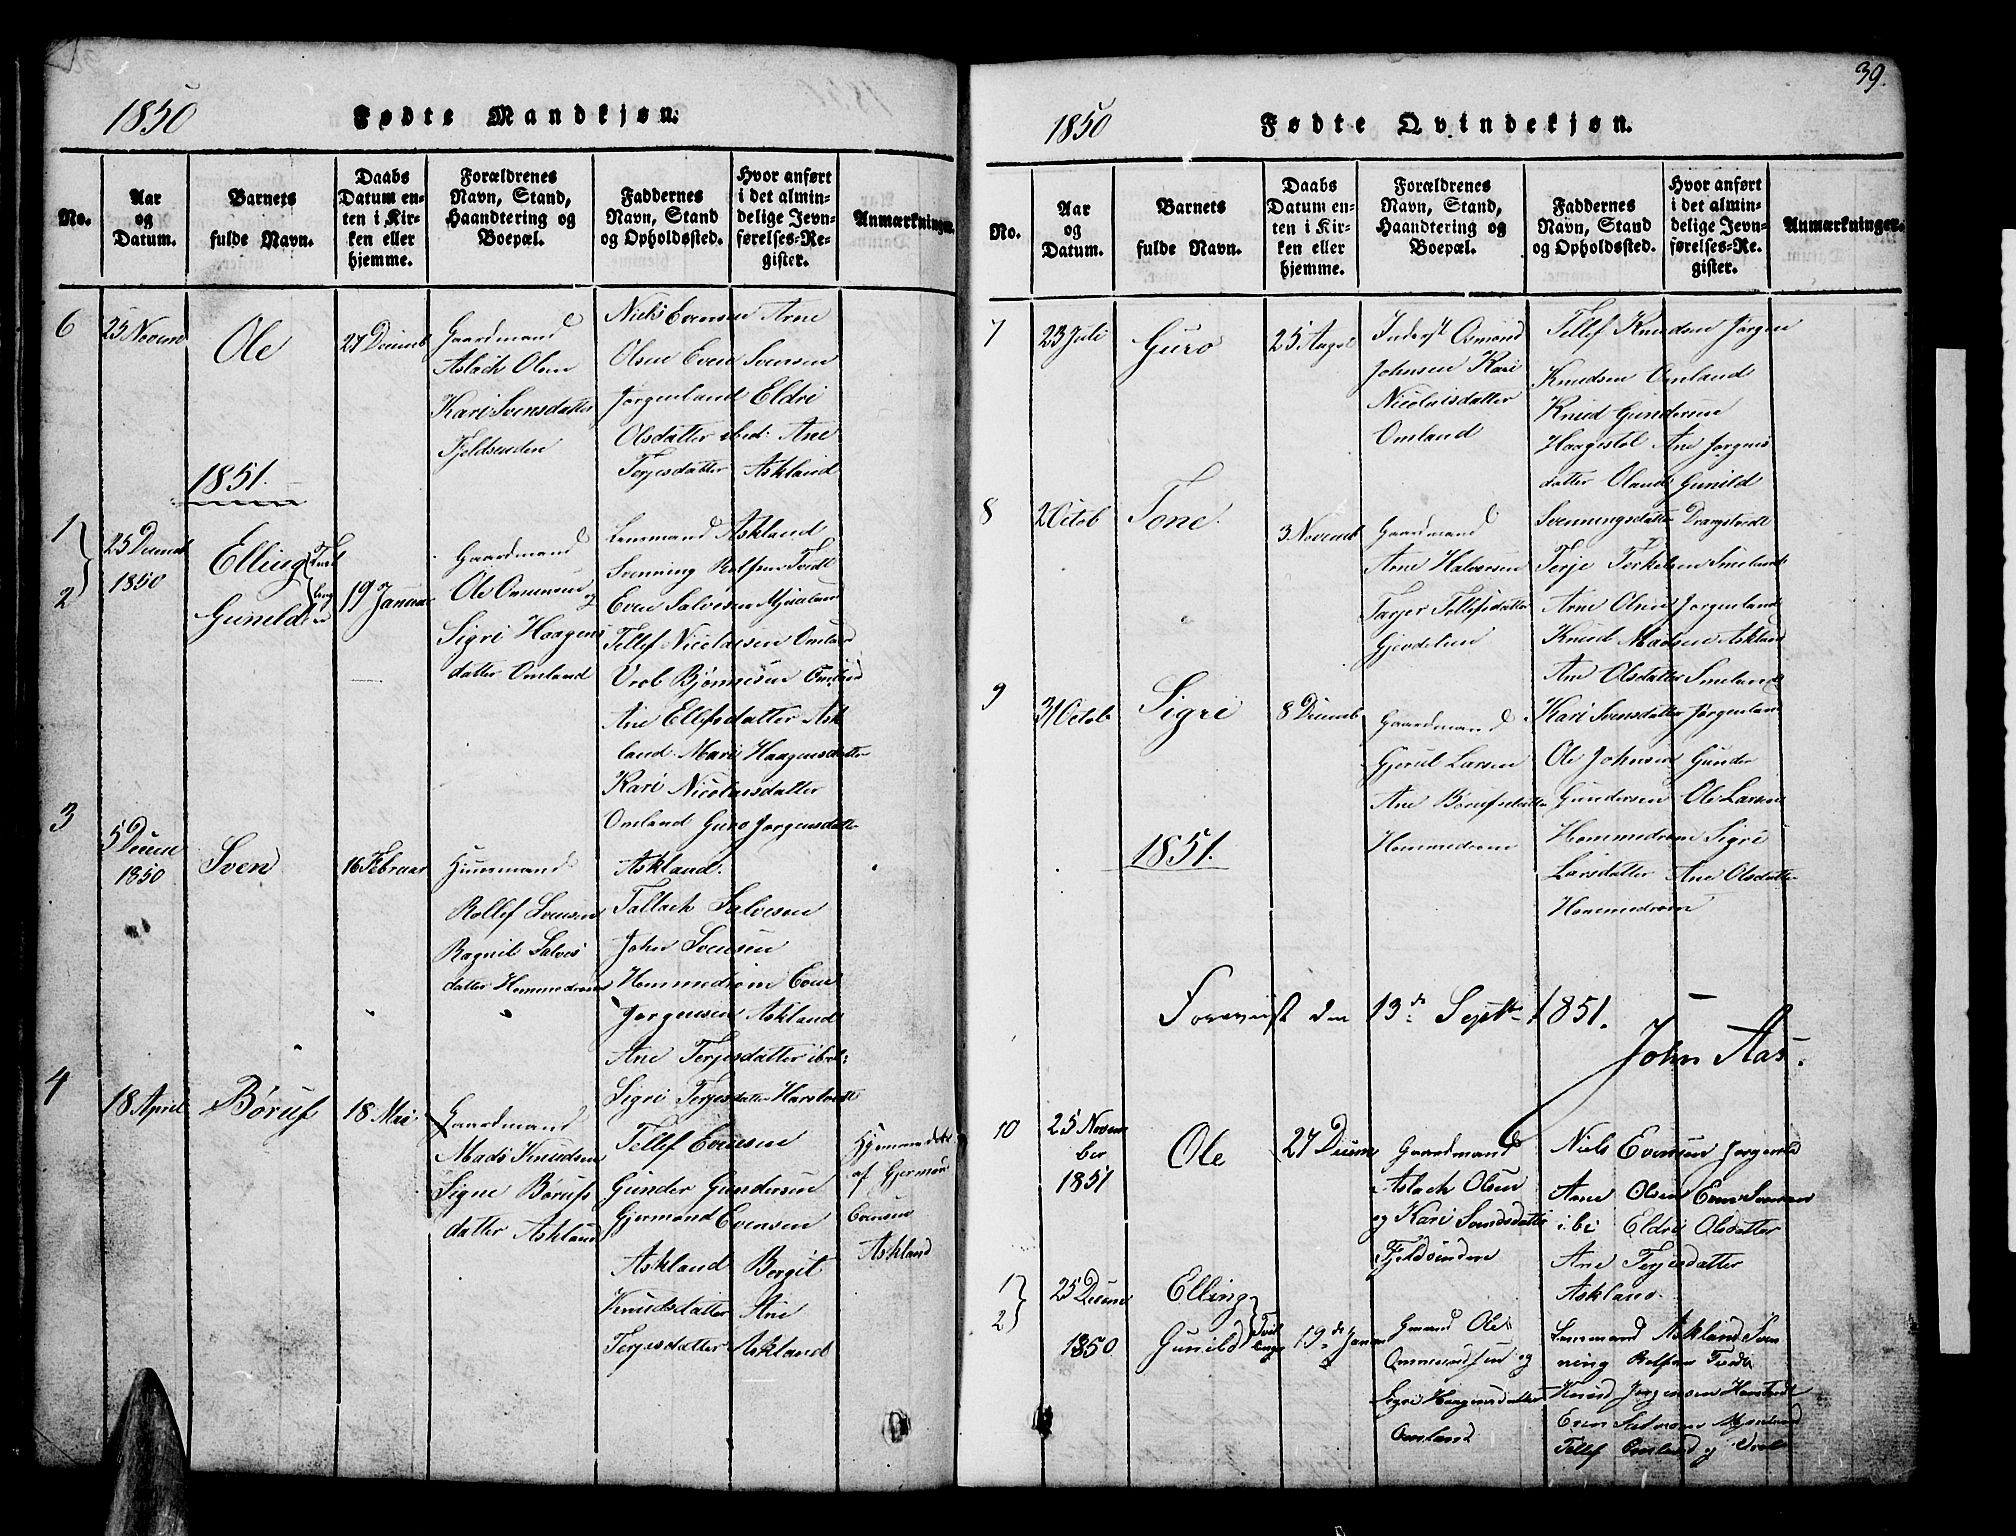 1850
Fødte Mandkjøn.
No.
Aar
og
Datum.
Barnets
fulde Navn.
Daabs
Datum en-
ten i Kir-
ken eller
hjemme.
Forældrenes
Navn, Stand,
Haandtering og
Boepæl.
Faddernes
Navn, Stand
og Opholdssted.
Hvor anført
i det almin-
delige Jevn-
førelses-Re-
gister.
Anmærkninger.
6
25 Novem
Ole
27 Decemb
Gaardmand
Aslach Olsen
Kari Svensdatter
Niels Evensen Arne
Olsen Even Svensen
Jørgenland Eldri
Olsdatter ibed: Ane
Terjesdatter Askland
1851.
1
2
25 Decemb
1850
Elling
Gunild
19 Januar
Gaardmand
Ole Ommunsen og
Sigri Haagens
datter Omland
Lensmand Askland
Svenning Rolfsen Tvedt
Even Salvesen Mjaaland
Tellef Nicolaisen Omland
Bjørnsen Omland
Ane Ellefsdatter Ask
land Mari Haagensdatter
Kari Nicolaisdatter
Omland Guro Jørgensdatter
Askland.
3
5 Decem
1850
Sven
16 Februar
Huusmand
Rollef Svensen
Ragnil Salves
datter Hommedrom
Tallach Salvesen
John Svensen
Hommedrom Even
Jørgensen Askland
Ane Terjesdatter ibd:
Sigri Terjesdatter
4
18 April
Børuf
18 Mai
Gaardmand
Mads Knudsen
Signe Børufs
datter Askland
Tellef Evensen
Gunder Gundersen
Gjermond Evensen
Askland Borgit
Knudsdatter Ane
Terjesdatter Askland
Hjemmedøbt
af Gjermon
Evensen
Askland
39.
1850
Fødte Qvindekjøn.
No.
Aar
og
Datum.
Barnets
fulde Navn.
Daabs
Datum en-
ten i Kir-
ken eller
hjemme.
Forældrenes
Navn, Stand,
Haandtering og
Boepæl.
Faddernes
Navn, Stand
og Opholdssted.
Hvor anført
i det almin-
delige Jevn-
førelses-Re-
gister.
Anmærkninger.
7
23 Juli
Guro
25 Augst
Inderst Osmond
Johnsen Kari
Nicolaisdatter
Omland
Tellef Knudsen Jørgen
Knudsen Omland
Knud Gundersen
Haagestøl Ane Jørgens
datter Oland Gunild
Svenningsdatter
8
2 Octob
Tone.
3 Novemb
Gaardmand
Arne Halvorsen
Tarjer Tellefsdatter
Terje Terkelsen Smeland
Arne Olsen Jørgenland
Knud Madsen Askland
Ane Olsdatter Smeland
Kari Svensdatter Jørgenland
9
31 Octob
Sigri
8 Decemb
Gaardmand
Gjerul Larsen
Ane Børufsdatter
Hommedrom
Ole Johnsen Gunder
Gundersen Ole Larsen
Hommedrom Sigri
Larsdatter Ane Olsdatter
Hommedrom
1851.
Foreviist den 13de Septbr 1851.
John Aas.
10
25 Novem
ber
1851
Ole
27 Decem
Gaardmand
Aslach Olsen
og Kari Svendsdatter
Niels Evensen Jørgenld
Arne Olsen Even Svensen
ibi Eldri Olsdatter
Ane Terjesdatter
Askland.
1
2
25 Decem
1850
Elling
Gunild
Tvil
linge
19de Januar
Gmand Ole
Ommundsen og
Sigri Haagensdatter
Omland
Lensmand Askland Sven
ning Rolfsen Tvedt
Knud Jørgensen
Even Salvesen
Tellef Omland og